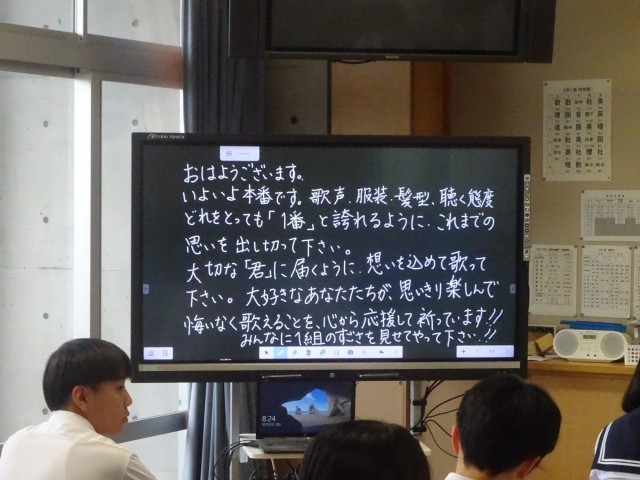 おはようございます。
いよいよ本番です。歌声、服装、髪型、聴く態度
どれをとっても「1番」と誇れるように、これまでの
思いを出し切って下さい。
大切な「君」に届くように、想いを込めて歌って
下さい。大好きなあなたたちが、思いきり楽しんで
悔いなく歌えることを、心から応援して祈っています!!
みんなに1組のすごさを見せてやって下さい!!
8:24